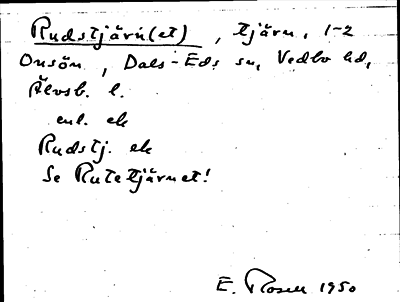 Rudstjärn(et), tjärn, 1-2
Onsön, Dals-Eds sn, Vedbo hd,
Älvsb. l.
enl. ek
Rudstj. ek
Se Rutetjärnet!
E. Rosell 1950